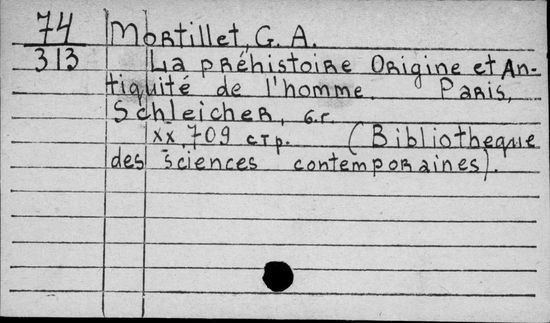 74 Mortillet, G. A.
313 La préhistoire Origine et An-
tiquité de l'homme. Paris,
Schleicher, б.г.
XX, 709 стр. (Bibliotheque
des sciences contemporaines).